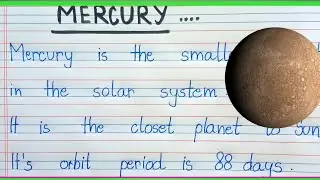 MERCURY ....
Mercury is the small
in the solar system
It is the closet planet to Sun
It's orbit period is 88 days.